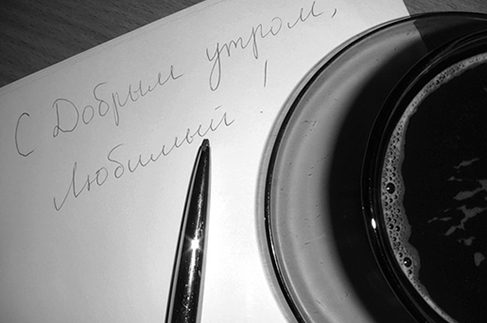 С Добрым утром,
Любимый!